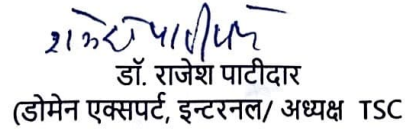 डॉ. राजेश पाटीदार
(डोमेन एक्सपर्ट, इन्टरनल/ अध्यक्ष TSC